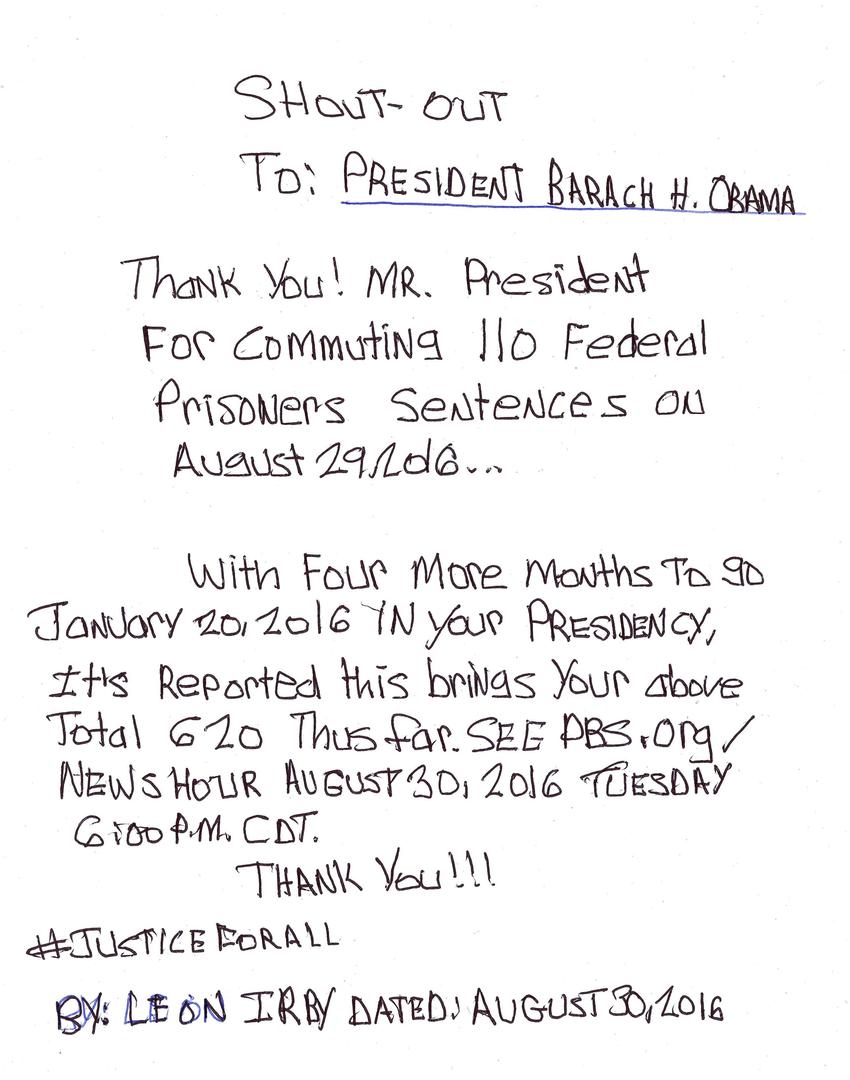 SHOUT- OUT
TO: PRESIDENT BARACH H. OBAMA
Thank You! MR. President
For Commuting 110 Federal
Prisoners Sentences on
August 29,2016...
With Four More Months To go
January 20, 2016 IN your PRESIDENCY,
It's Reported this brings Your above
Total 620 Thus far. SEE PBS.org/
NEWSHOUR AUGUST 30, 2016 TUESDAY
6:00 P.M. CDT.
THANK You!!!
#JUSTICEFORALL
BY: LEON IRBY DATED: AUGUST 30, 2016